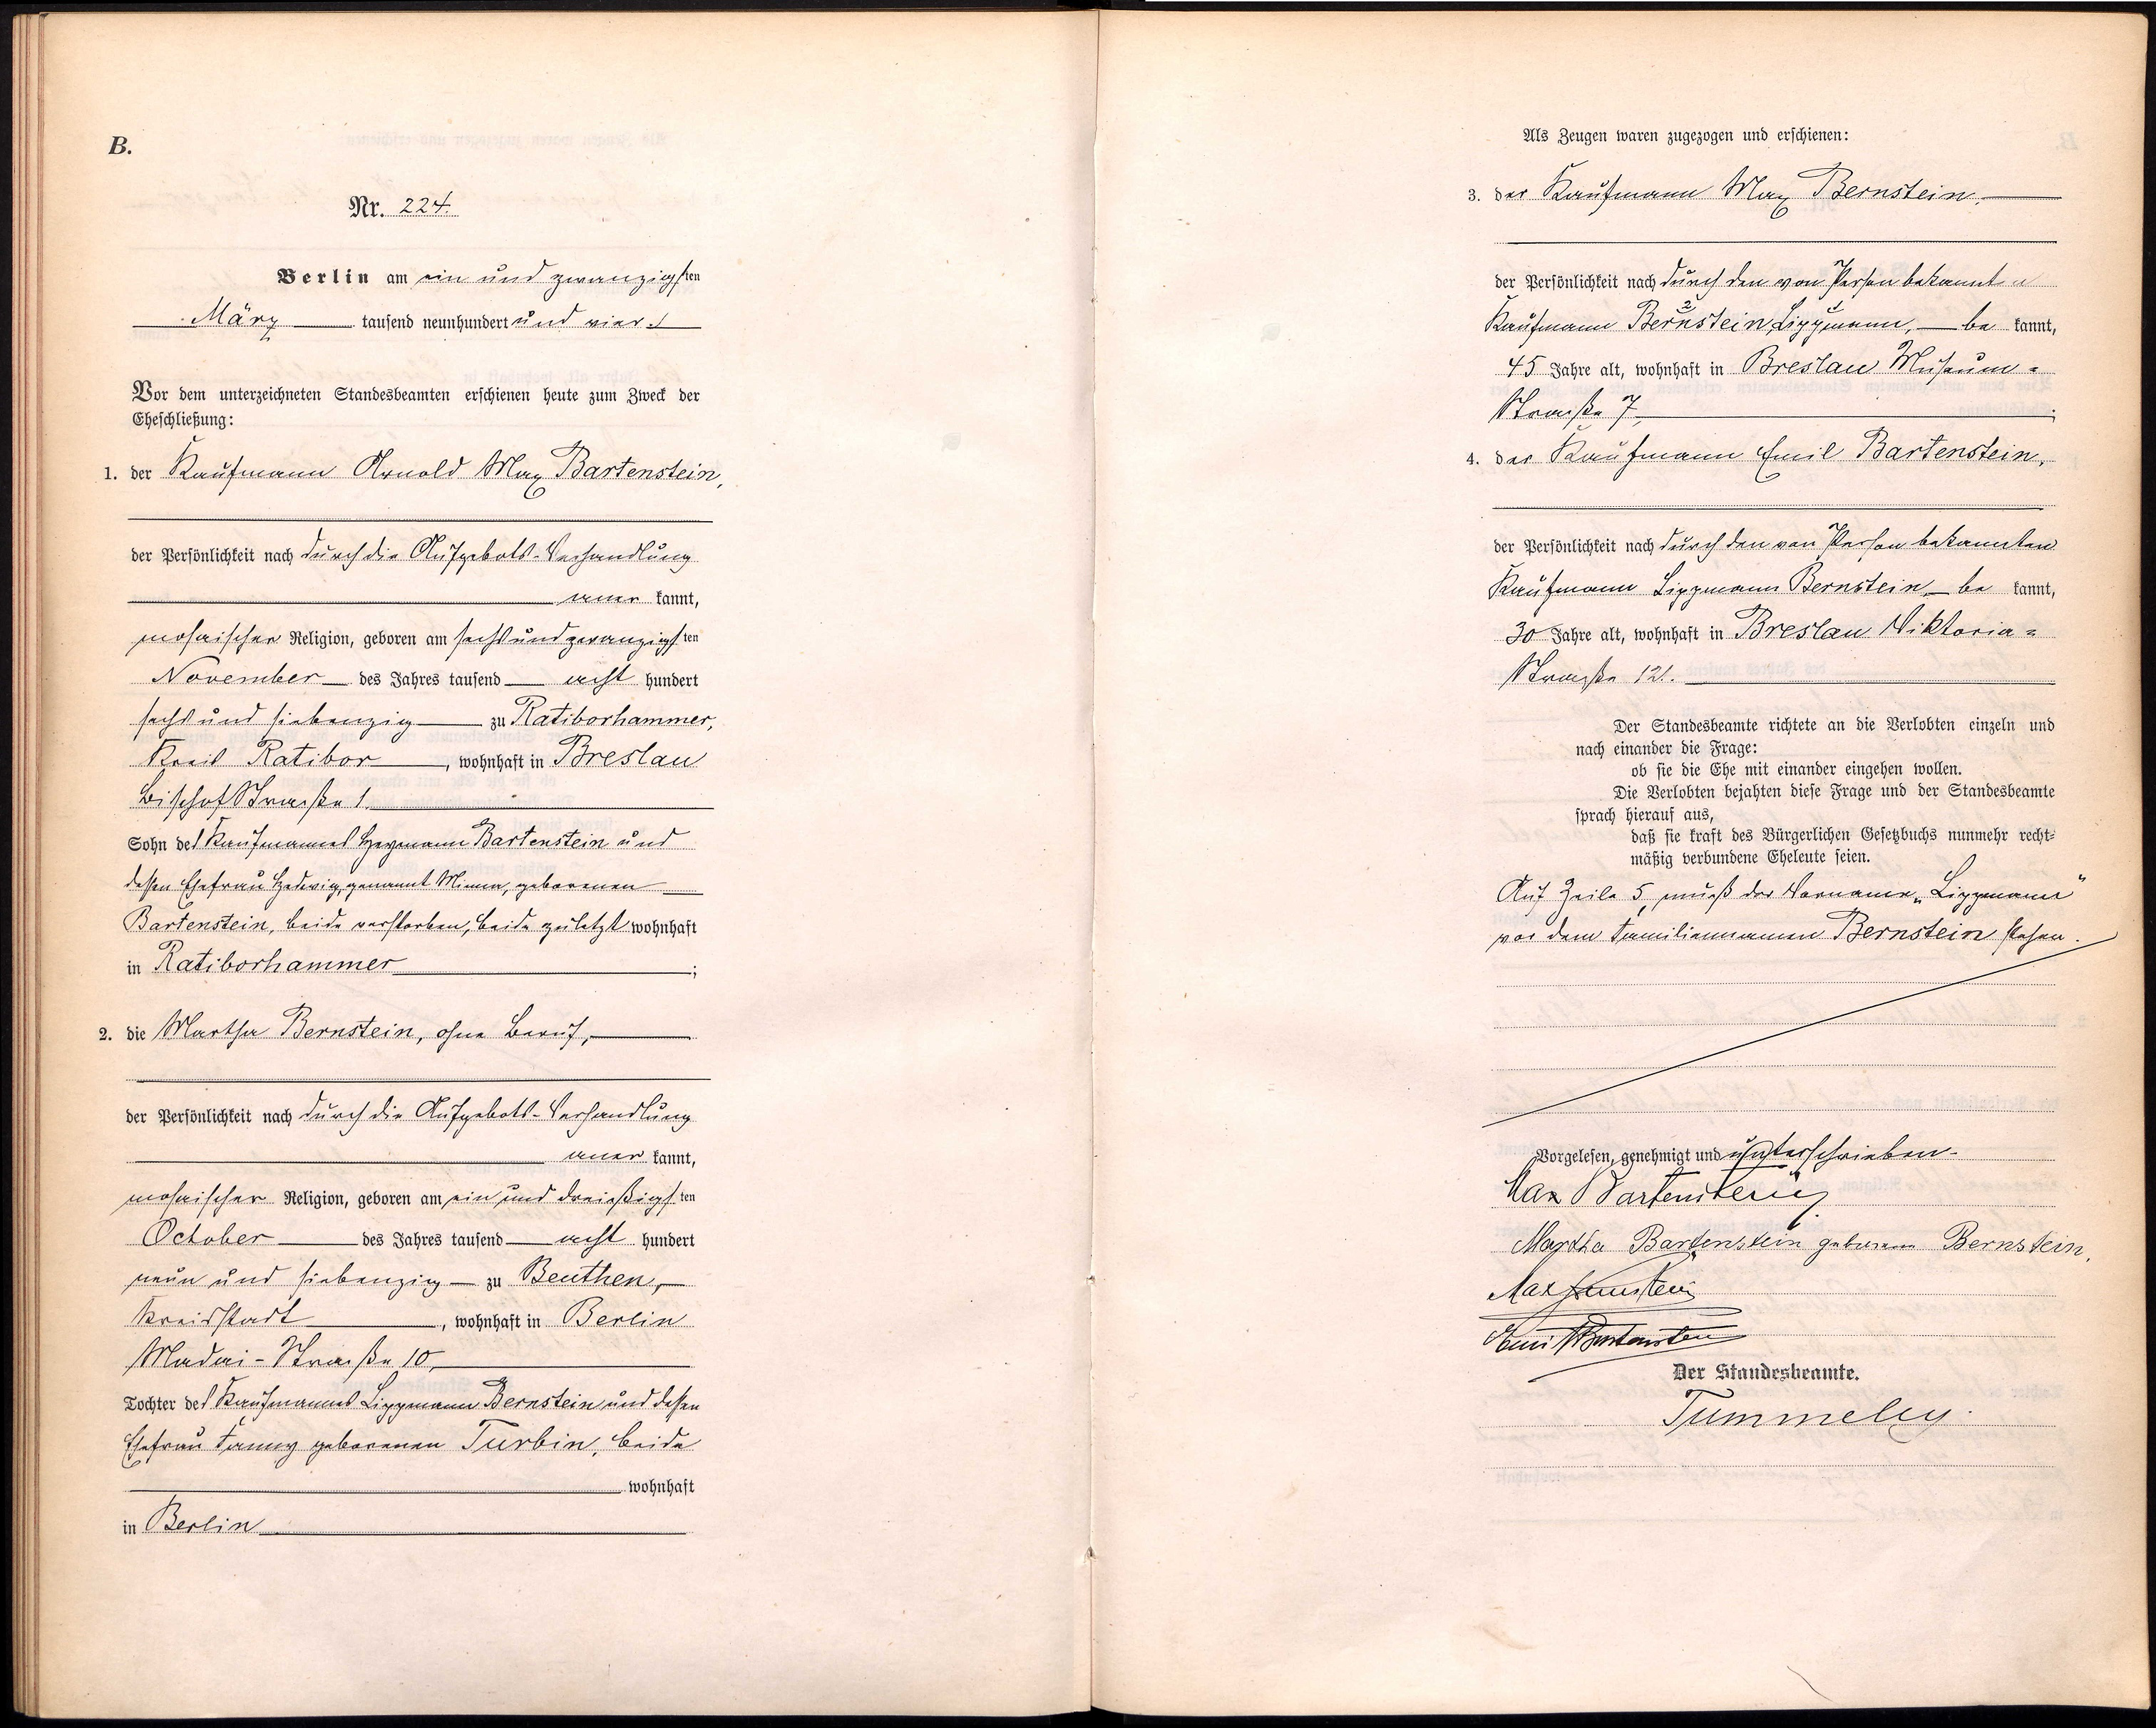 B.
Nr. 224.
Berlin am ein und zwanzigsten
März tausend neunhundert und vier.
Vor dem unterzeichneten Standesbeamten erschienen heute zum Zweck der
Eheschließung:
1. der Kaufmann Arnold Max Bartenstein,
der Persönlichkeit nach durch die Aufgebots-Verhandlung
aner kannt,
mosaischer Religion, geboren am sechs und zwanzigsten
November des Jahres tausend acht hundert
sechs und siebenzig zu Ratiborhammer,
Kreis Ratibor, wohnhaft in Breslau
Bischofstrasse 1.
Sohn des Kaufmannes Heymann Bartenstein und
dessen Ehefrau Hedwig, genannt Minna, geborenen
Bartenstein, beide verstorben, beide zuletzt wohnhaft
in Ratiborhammer;
2. die Martha Bernstein, ohne Beruf,
der Persönlichkeit nach durch die Aufgebots-Verhandlung
aner kannt,
mosaischer Religion, geboren am ein und dreißigsten
October des Jahres tausend acht hundert
neun und siebenzig zu Beuthen,
Kreisstadt, wohnhaft in Berlin
Madai-Strasse 10,
Tochter des Kaufmannes Lippmann Bernstein und dessen
Ehefrau Fanny geborenen Turbin, beide
wohnhaft
in Berlin
Als Zeugen waren zugezogen und erschienen:
3. der Kaufmann Max Bernstein,
der Persönlichkeit nach durch den von Person bekannten
Kaufmann Bernstein, Lippmann, be kannt,
45 Jahre alt, wohnhaft in Breslau Museum-
Strasse 7,;
4. der Kaufmann Emil Bartenstein,
der Persönlichkeit nach durch den von Person bekannten
Kaufmann Lippmann Bernstein, be kannt,
30 Jahre alt, wohnhaft in Breslau Viktoria-
Strasse 121.
Der Standesbeamte richtete an die Verlobten einzeln und
nach einander die Frage:
ob sie die Ehe mit einander eingehen wollen.
Die Verlobten bejahten diese Frage und der Standesbeamte
sprach hierauf aus,
daß sie kraft des Bürgerlichen Gesetzbuchs nunmehr recht-
mäßig verbundene Eheleute seien.
Auf Zeile 5, muß der Vorname „Lippmann"
vor dem Familiennamen Bernstein stehen.
Vorgelesen, genehmigt und unterschrieben.
Max Bartenstein
Martha Bartenstein geborene Bernstein.
Max Bernstein
Emil Bartenstein
Der Standesbeamte.